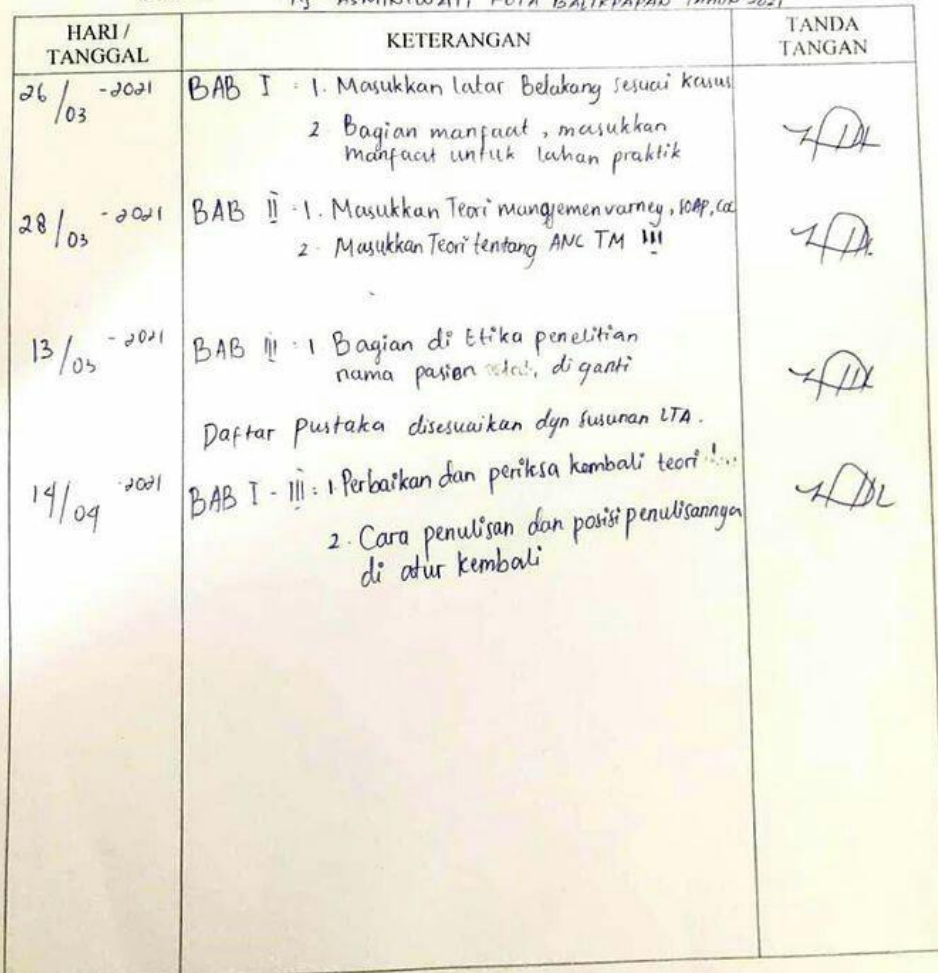 ASMINIWATI KOTA BALIKPAPAN TAHUN 2021
HARI / TANGGAL
KETERANGAN
TANDA TANGAN
26/03 -2021
BAB I : 1. Masukkan latar Belakang sesuai kasus
2 Bagian manfaat, masukkan
manfaat untuk lahan praktik
28/03 -2021
BAB II : 1. Masukkan Teori mangjemen varney, SOAP, COC
2. Masukkan Teori tentang ANC TM III
13/03 -2021
BAB III : 1 Bagian di Etika penelitian
nama pasien di ganti
Daftar Pustaka disesuaikan dgn susunan LTA.
14/04 -2021
BAB I - III : 1. Perbaikan dan periksa kembali teori
2. Cara penulisan dan posisi penulisannya
di atur kembali